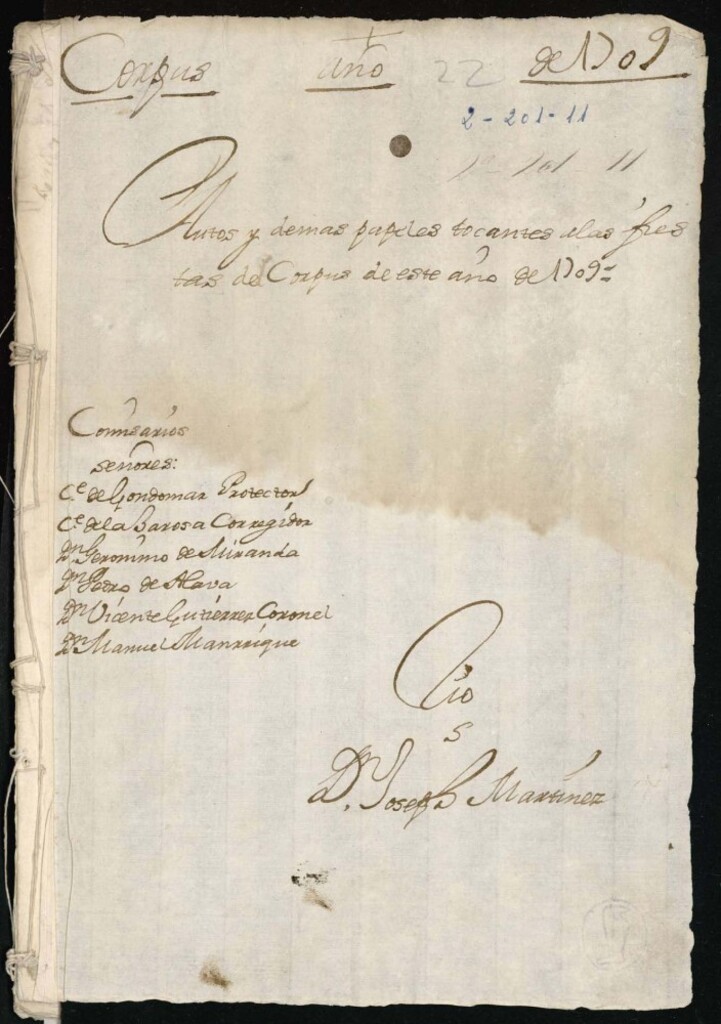 Corpus año 22 de 1709
2-201-11
11
Autos y demas papeles tocantes alas fies
tas del Corpus de este año de 1709=
Comisarios
señores:
C.e de Gondomar Protector
C.e de la Jarosa Corregidor
Dn Geronimo de Miranda
Dn Pedro de Alava
Dn Vicente Gutierrez Coronel
Dn Manuel Manrrique
S
Dn Joseph Martinez